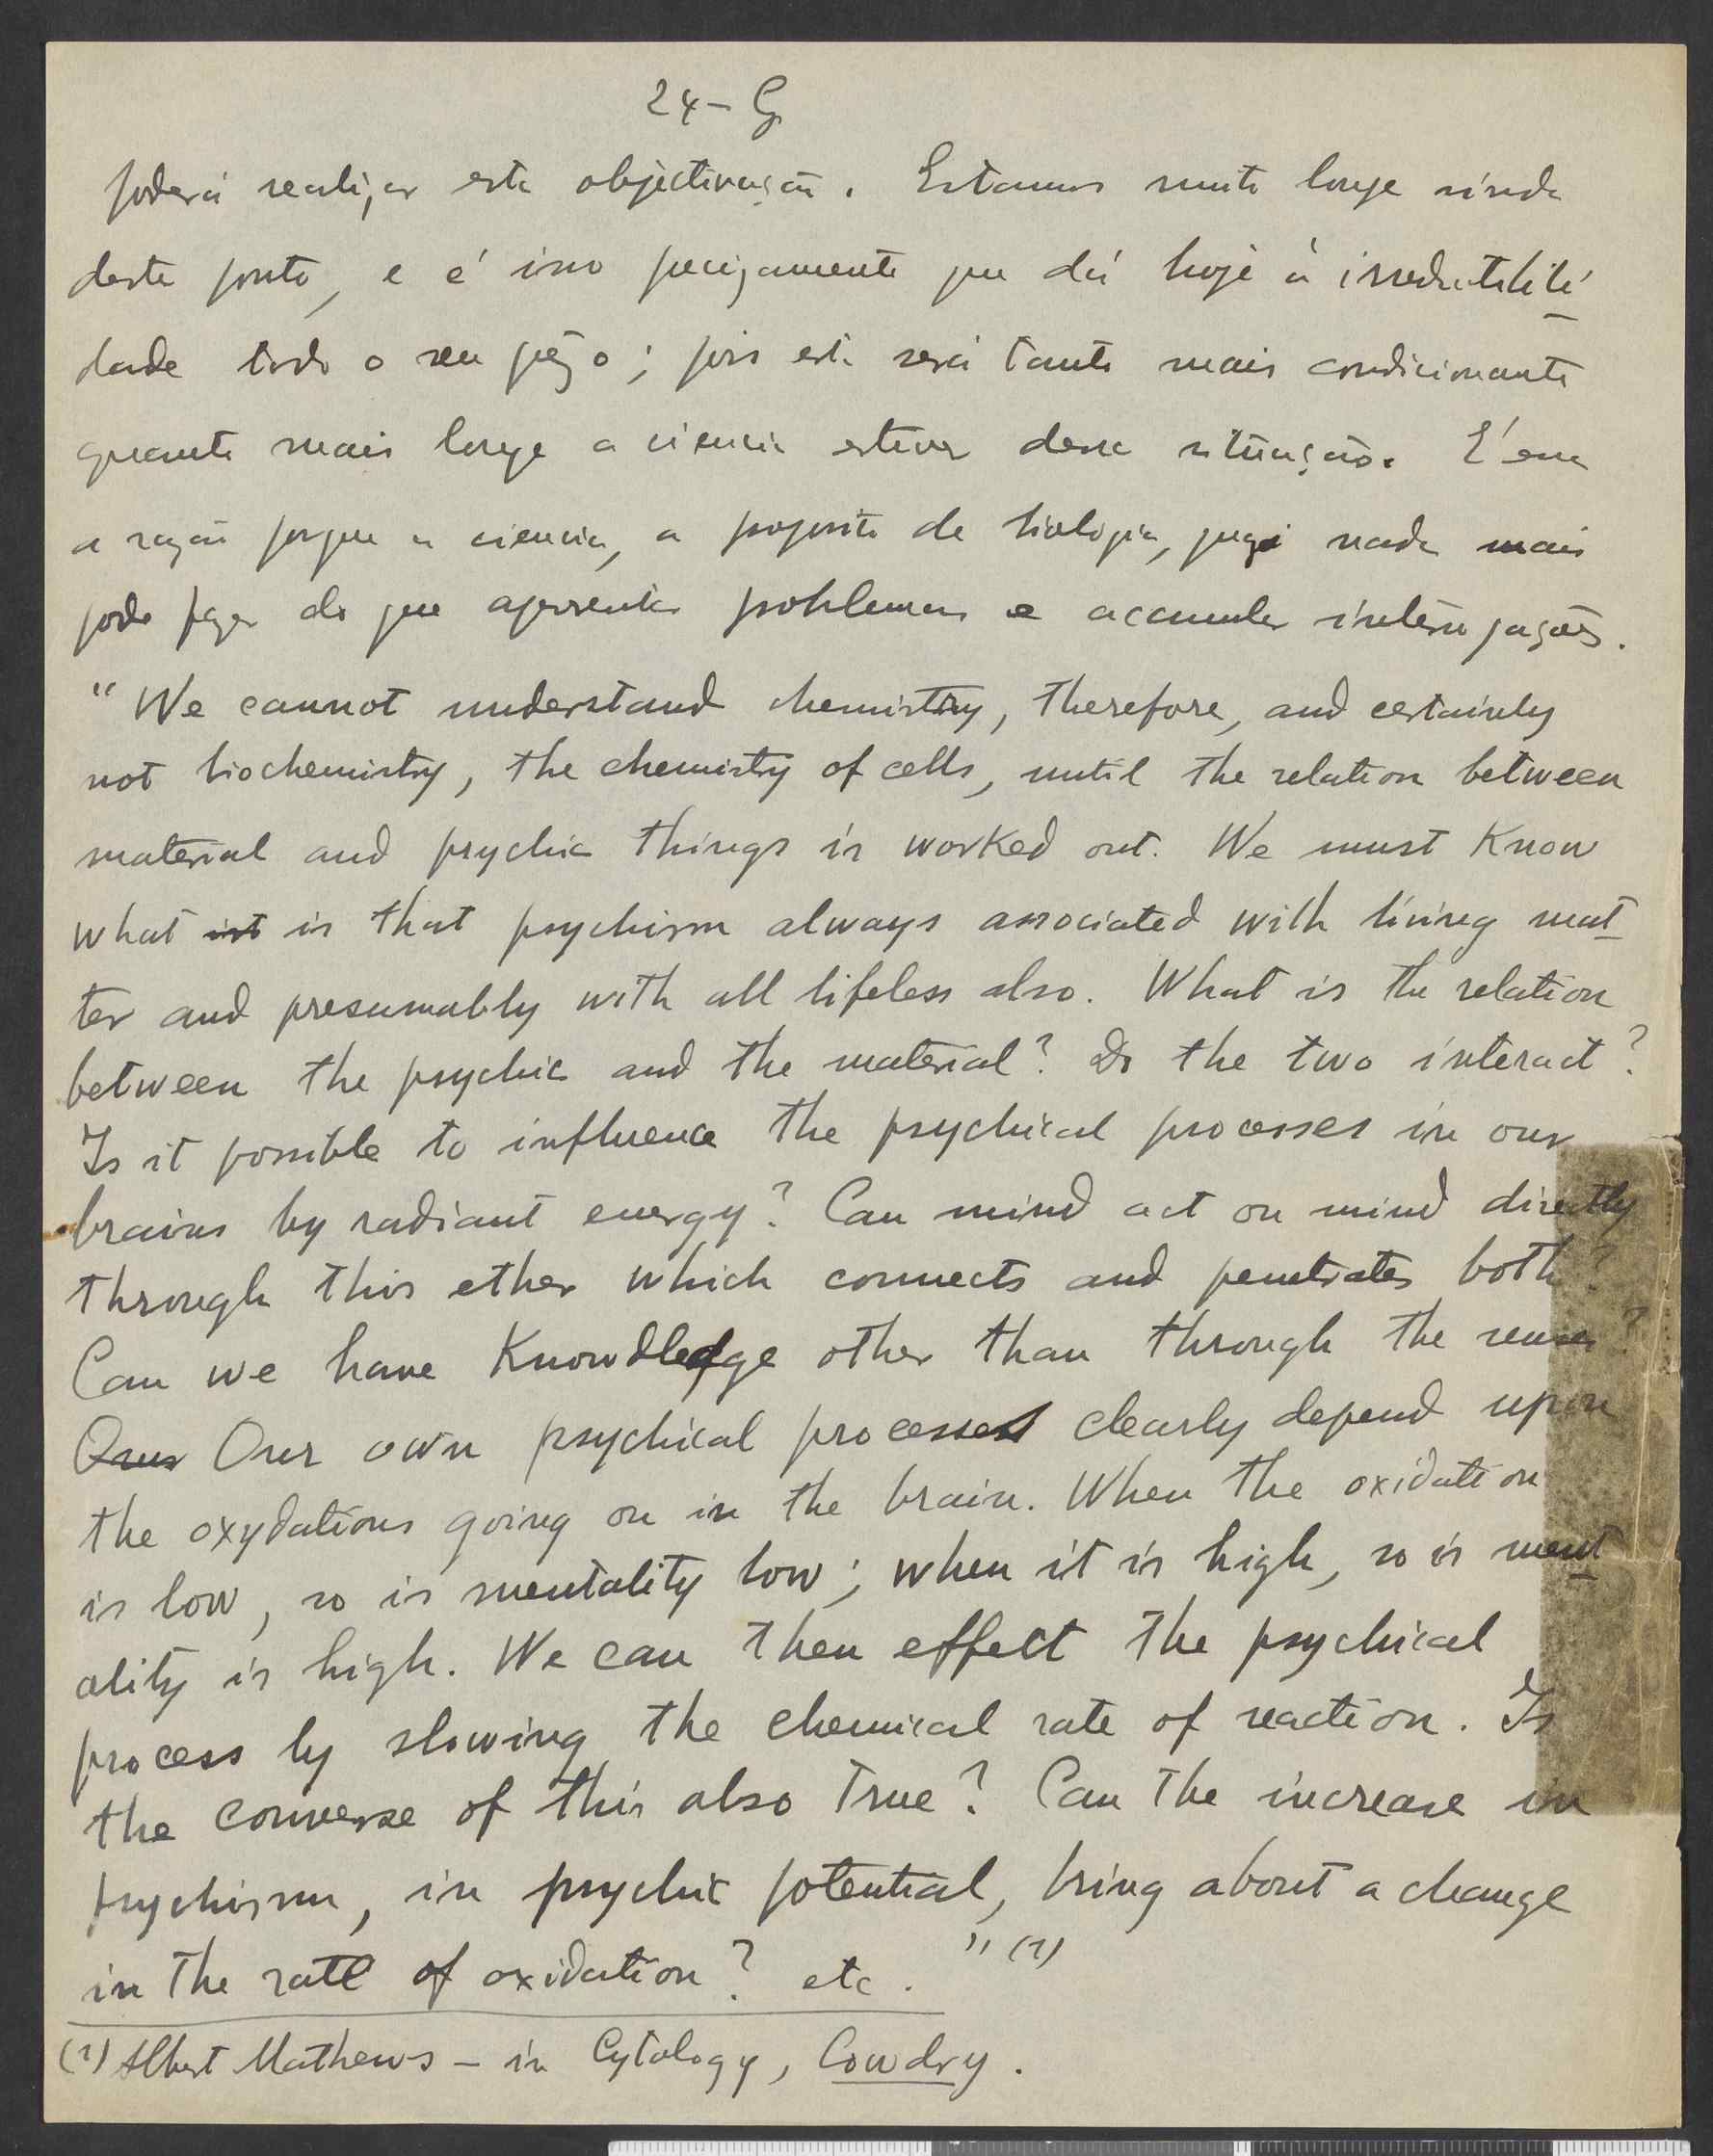 24 – G
poderá realizar esta objectivação. Estamos muito longe ainda
deste ponto, e é isso precizamente que dá hoje á irredutibili
dade todo o seu pezo; pois esta será tanto mais condicionante
quanto mais longe a ciencia estiver dessa situação. É essa
a razão porque a ciencia, a proposito de biologia, nada mais
pode fazer do que apresentar problemas e accumular interrogações.
"We cannot understand chemistry, therefore, and certainly
not biochemistry, the chemistry of cells, until the relation between
material and psychic things is worked out. We must Know
what ist is that psychism always associated with living mat
ter and presumably with all lifeless also. What is the relation
between the psychic and the material? Do the two interact?
Is it possible to influence the psychical processes in our
brains by radiant energy? Can mind act on mind directly
through this ether which connects and penetrates both?
Can we have Knowdledge other than through the senses?
Our Our own psychical processes clearly depend upon
the oxydations going on in the brain. When the oxidation
is low, so is mentality low; when it is high, so is ment
ality is high. We can then effect the psychical
process by slowing the chemical rate of reaction. Is
the converse of this also true? Can the increase in
psychism, in psychic potential, bring about a change
in the rate of oxidation? etc." (1)
(1) Albert Mathews – in Cytology, Cowdry.